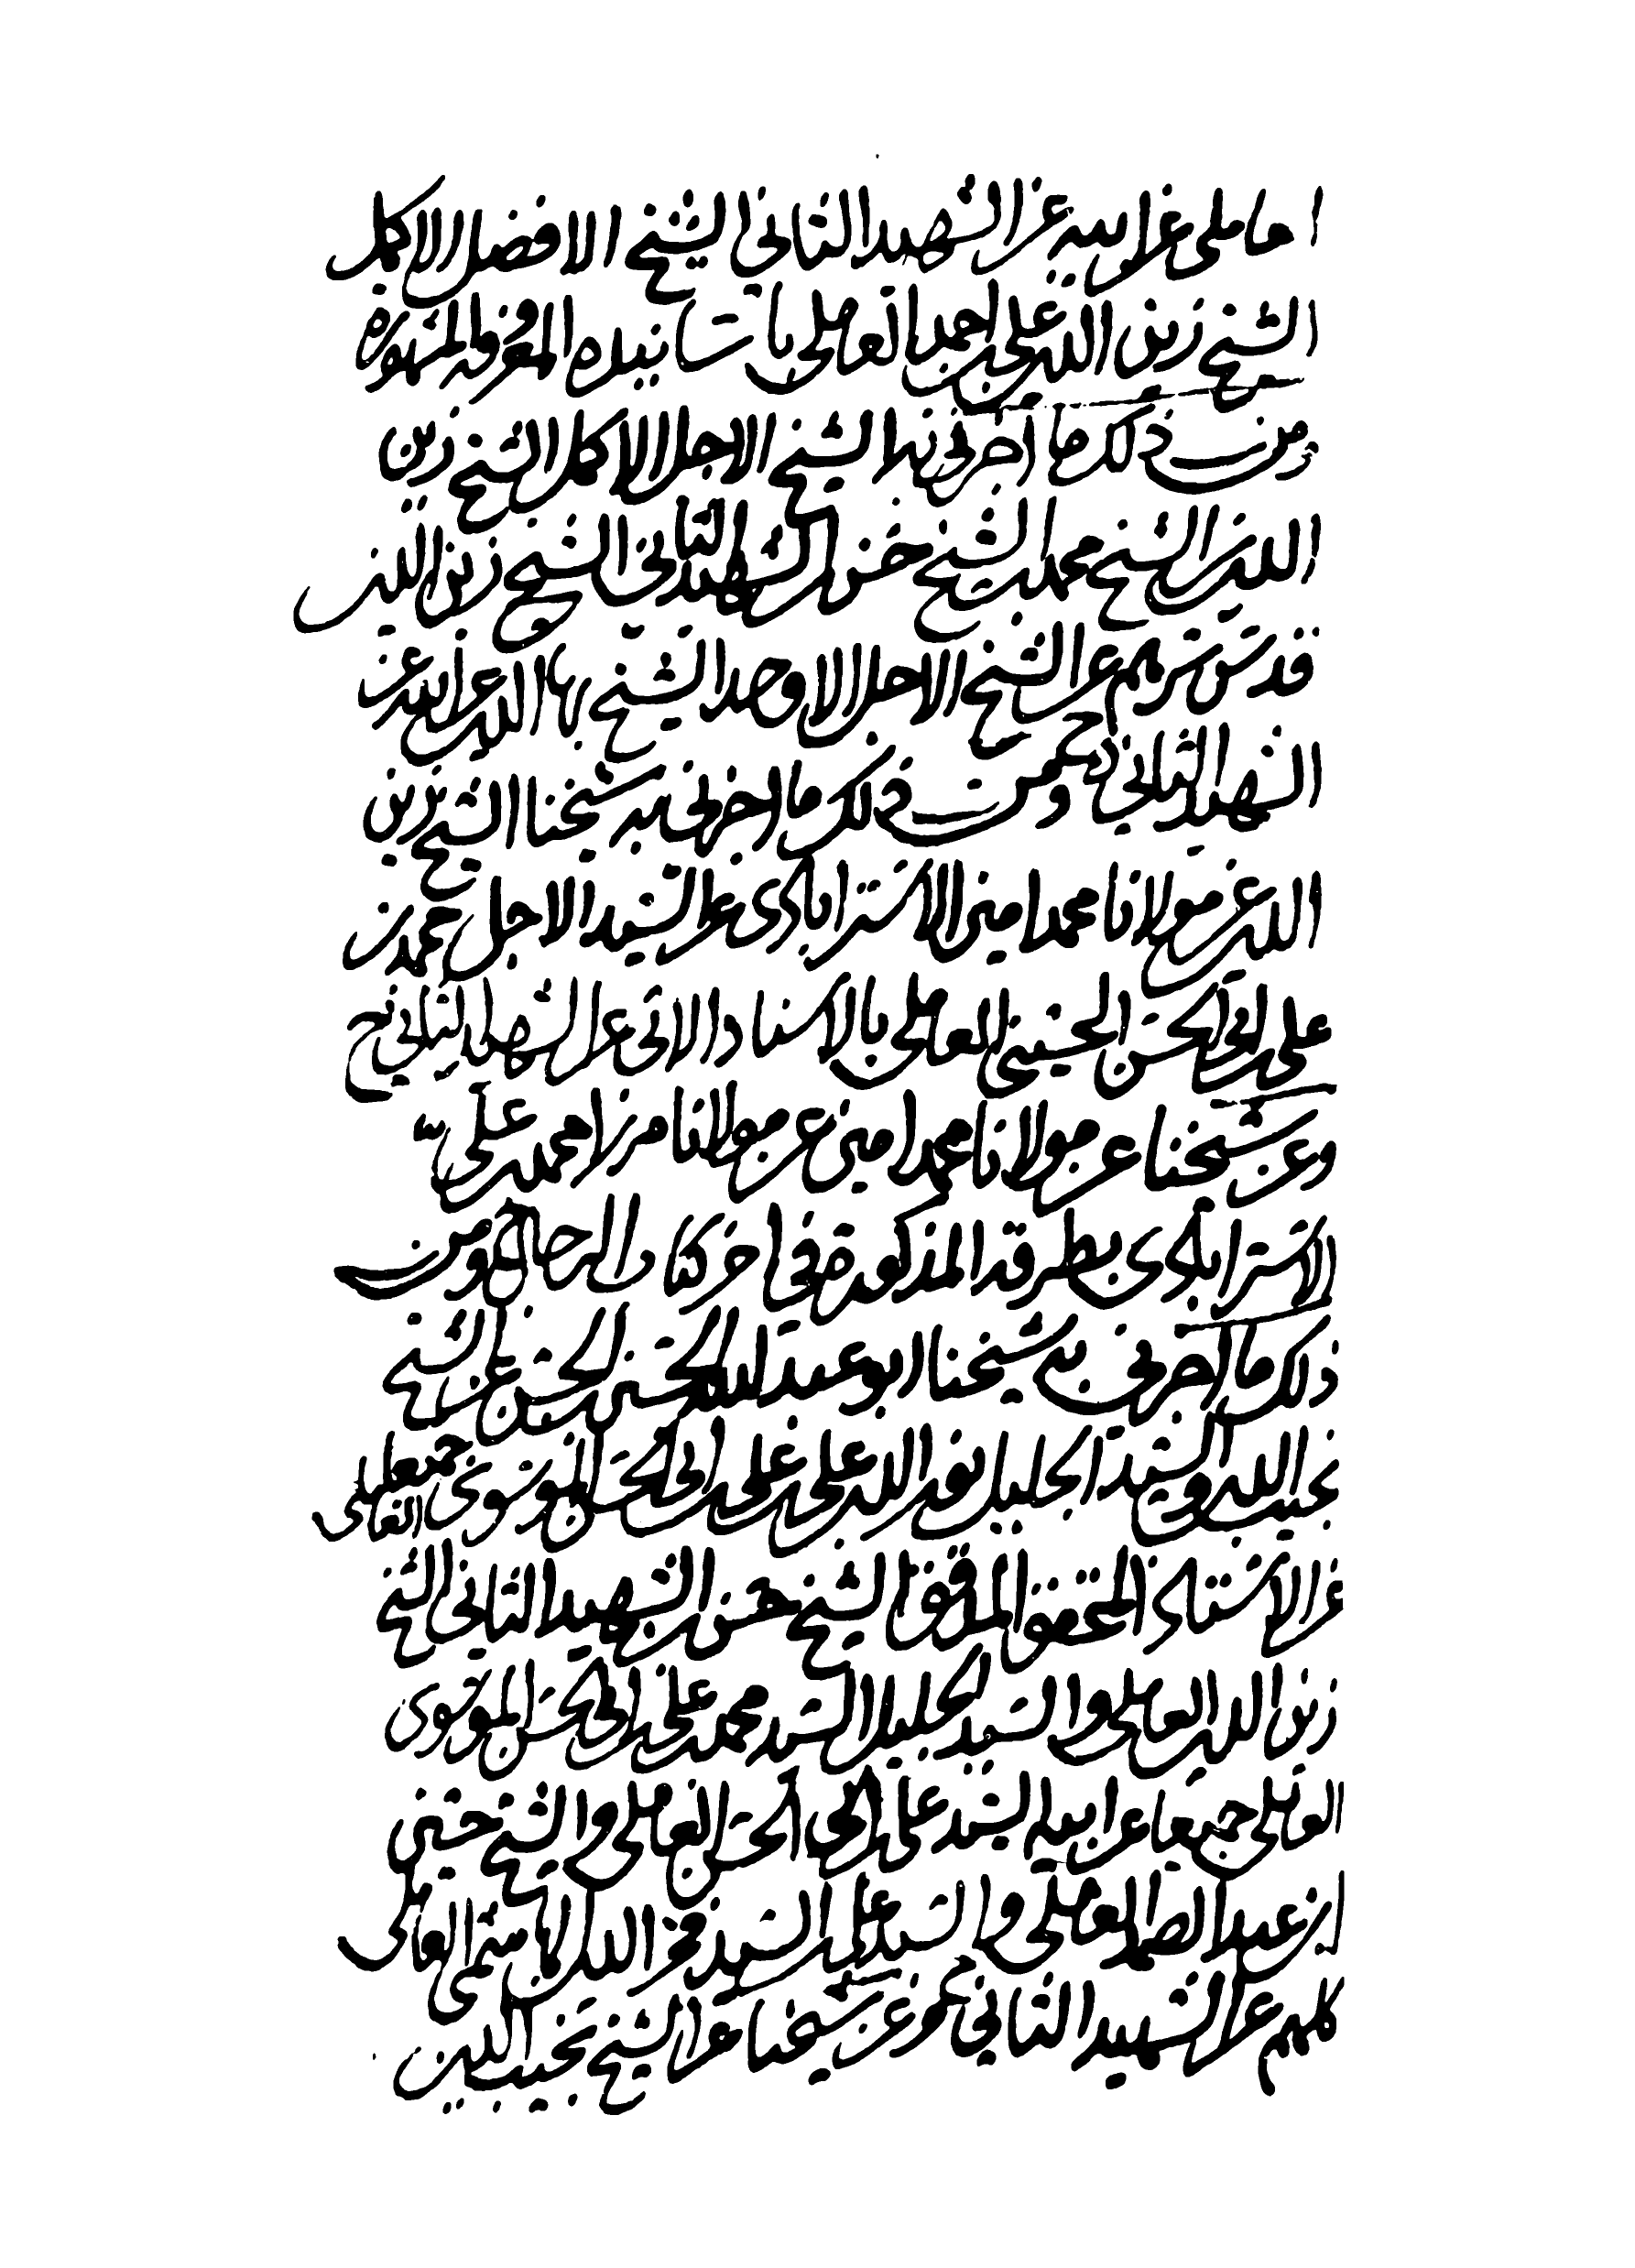 العاملی عن ابیه عن الشهید الثانی الشیخ الافضل الاکمل
الشیخ زین الدین علی بن احمد العاملی باسانیده المعروفة المشهورة
ومن ذلک ما اخبرنی به الشیخ الاجل الاکمل الشیخ زین
الدین بن الشیخ محمد بن الشیخ حسن بن الشهید الثانی الشیخ زین الدین
قدس سرهم عن الشیخ الاجل الاوحد الشیخ بهاء الدین عن ابیه عن
الشهید الثانی ح ومن ذلک ما اخبرنی به شیخنا الشیخ زین
الدین عن مولانا محمد امین الاسترابادی عن السید الاجل محمد بن
علی بن ابی الحسن الحسینی العاملی بالاسناد الاتی عن الشهید الثانی ح
وعن شیخنا عن مولانا محمد امین عن مولانا میرزا محمد بن علی
الاسترابادی بطرقه المذکورة فی اخر کتاب الرجال ومن
ذلک ما اخبرنی به شیخنا ابو عبد الله الحسین بن الحسن عن الشیخ
نجیب الدین والسید الجلیل نور الدین علی بن علی بن ابی الحسن الموسوی العاملی جمیعا
عن الاستاد المحقق المدقق الشیخ حسن بن الشهید الثانی الشیخ
زین الدین العاملی والسید الجلیل السید محمد بن علی بن ابی الحسن الموسوی
العاملی جمیعا عن ابیه السید علی بن ابی الحسن العاملی والشیخ حسین
ابن عبد الصمد العاملی والسید علی بن السید فخر الدین الهاشمی العاملی
کلهم عن الشهید الثانی ح وعن شیخنا عن الشیخ نجیب الدین